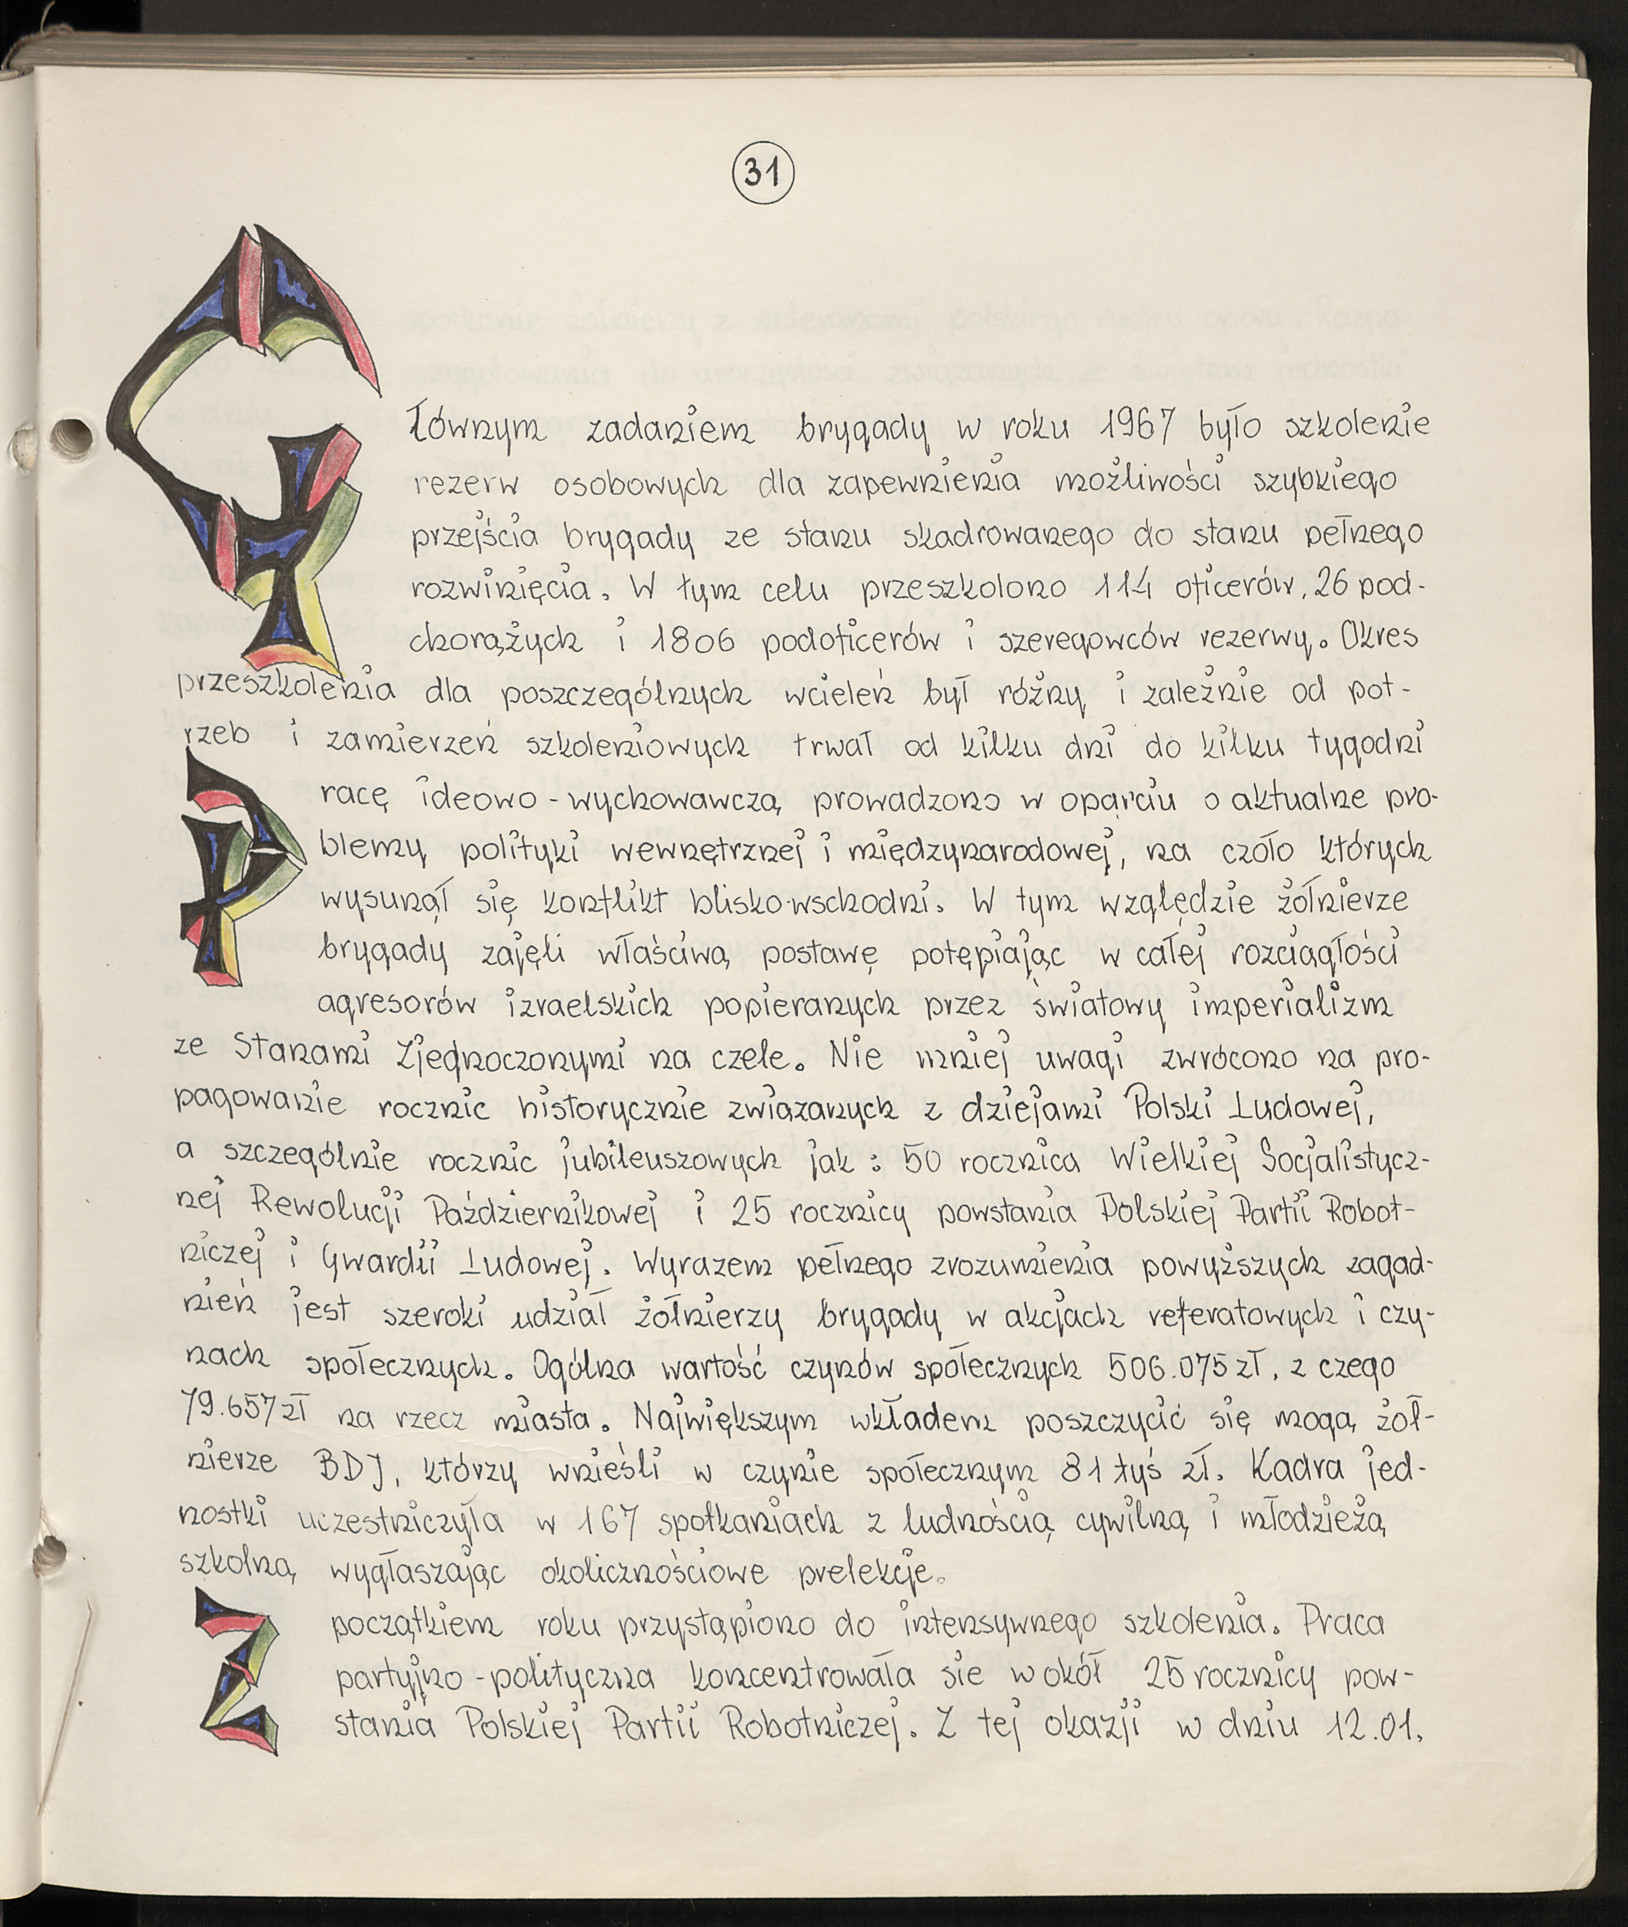 31
Głównym zadaniem brygady w roku 1967 było szkolenie
rezerw osobowych dla zapewnienia możliwości szybkiego
przejścia brygady ze stanu skadrowanego do stanu pełnego
rozwinięcia. W tym celu przeszkolono 114 oficerów, 26 pod-
chorążych i 1806 podoficerów i szeregowców rezerwy. Okres
przeszkolenia dla poszczególnych wcieleń był różny i zależnie od pot-
rzeb i zamierzeń szkoleniowych trwał od kilku dni do kilku tygodni
Pracę ideowo-wychowawczą prowadzono w oparciu o aktualne pro-
blemy polityki wewnętrznej i międzynarodowej, na czoło których
wysunął się konflikt blisko-wschodni. W tym względzie żołnierze
brygady zajęli właściwą postawę potępiając w całej rozciągłości
agresorów izraelskich popieranych przez światowy imperializm
ze Stanami Zjednoczonymi na czele. Nie mniej uwagi zwrócono na pro-
pagowanie rocznic historycznie zwiazanych z dziejami Polski Ludowej,
a szczególnie rocznic jubileuszowych jak: 50 rocznica Wielkiej Socjalistycz-
nej Rewolucji Październikowej i 25 rocznicy powstania Polskiej Partii Robot-
niczej i Gwardii Ludowej. Wyrazem pełnego zrozumienia powyższych zagad-
nień jest szeroki udział żołnierzy brygady w akcjach referatowych i czy-
nach społecznych. Ogólna wartość czynów społecznych 506.075 zł, z czego
79.657 zł na rzecz miasta. Największym wkładem poszczycić się mogą żoł-
nierze BDJ, którzy wnieśli w czynie społecznym 81 tyś zł. Kadra jed-
nostki uczestniczyła w 167 spotkaniach z ludnością cywilną i młodzieżą
szkolną wygłaszając okolicznościowe prelekcje.
Z początkiem roku przystąpiono do intensywnego szkolenia. Praca
partyjno-polityczna koncentrowała sie wokół 25 rocznicy pow-
stania Polskiej Partii Robotniczej. Z tej okazji w dniu 12.01.